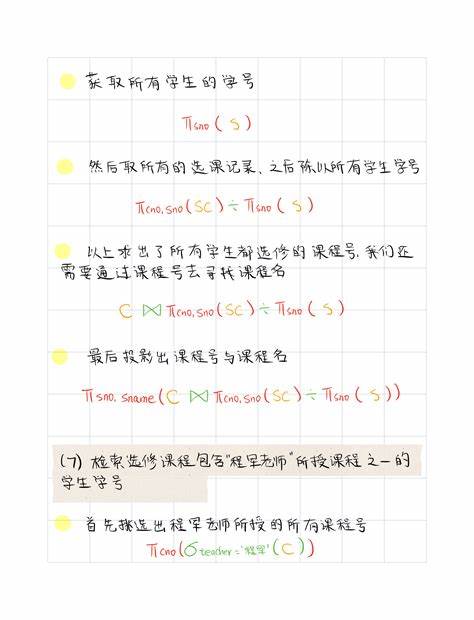 获取所有学生的学号
πsno(S)
然后取所有的选课记录、之后除以所有学生学号
πcno,sno(SC)÷πsno(S)
以上求出了所有学生都选修的课程号,我们还
需要通过课程号去寻找课程名
C⋈πcno,sno(SC)÷πsno(S)
最后投影出课程号与课程名
πsno,sname(C⋈πcno,sno(SC)÷πsno(S))
(7) 检索选修课程包含"程军老师"所授课程之一的
学生学号
首先挑选出程军老师所授的所有课程号
πcno(σteacher='程军'(C))